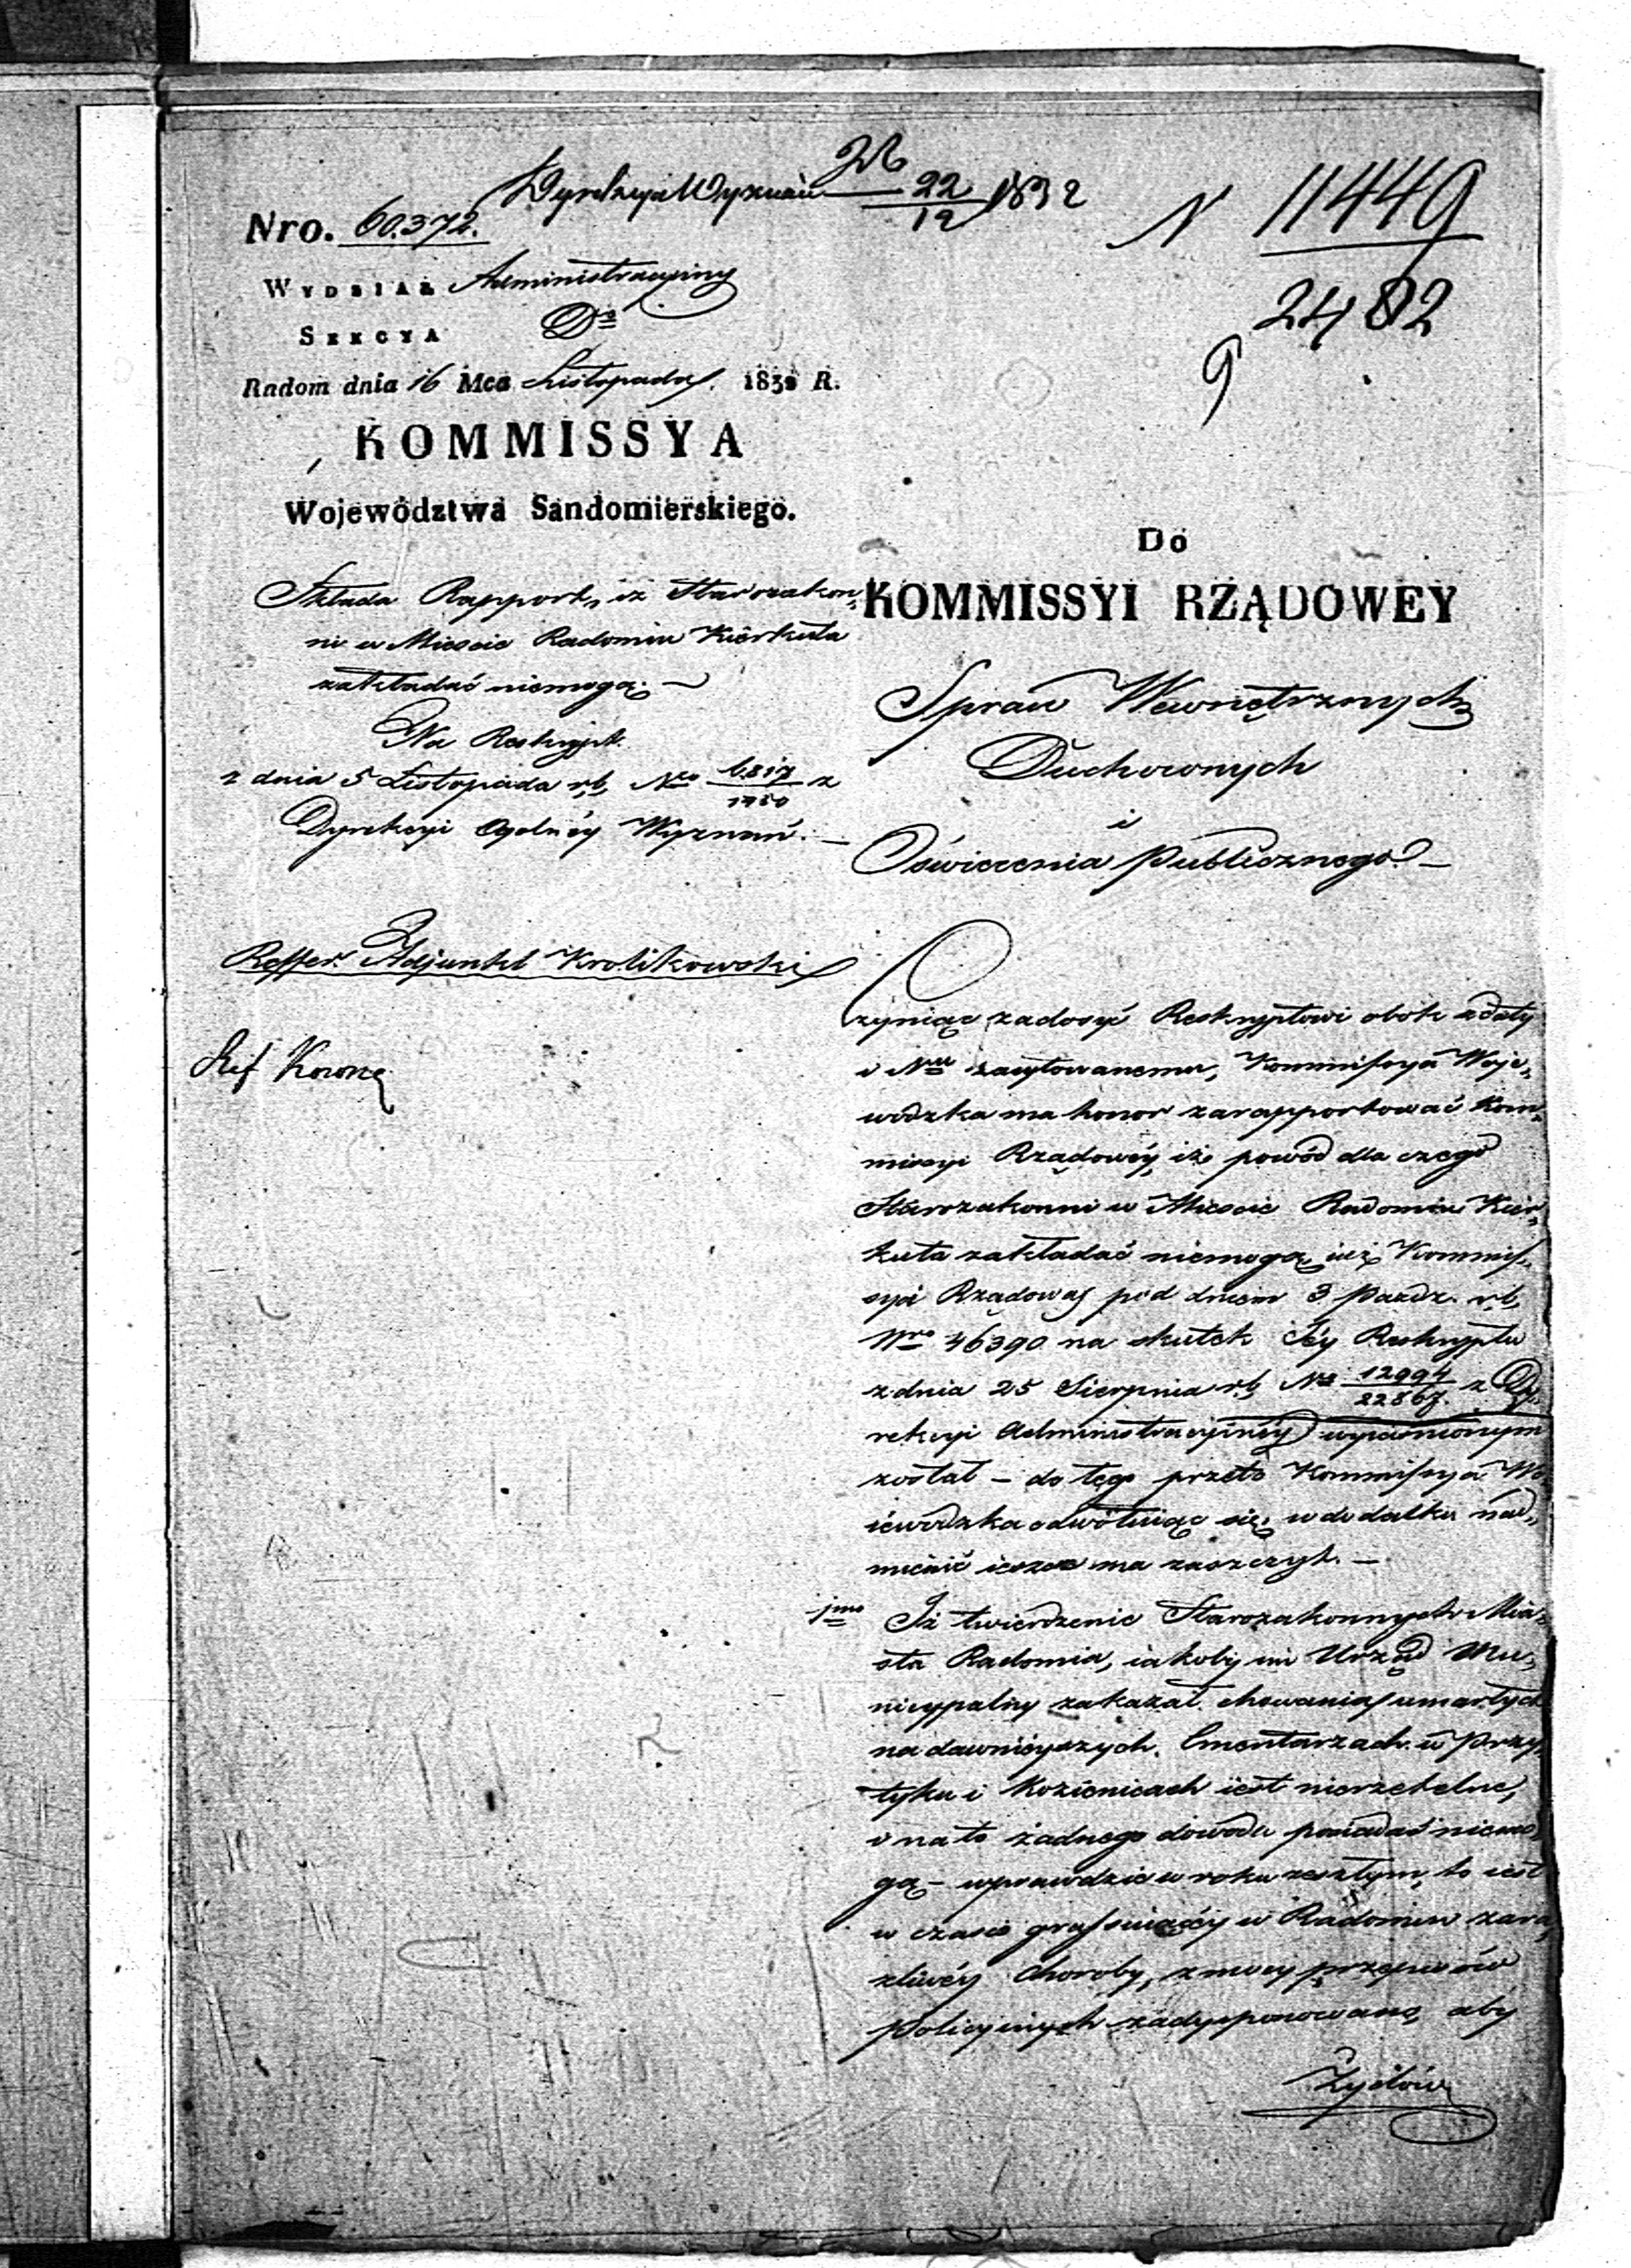 Dyrekcya Wyznań 22/12 1832
N 11449
2482
9
Nro. 60.372.
WYDZIAŁ Administracyiny
SEKCYA
Radom dnia 16 Mca Listopada 1832 R.
KOMMISSYA
Województwa Sandomierskiego.
Składa Rapport, iż Starozakon„
ni w Mieście Radomiu Kierkuta
zakładać niemogą. —
Na Reskrypt
z dnia 5 Listopada r.b. Nro 6817/1480 z
Dyrekcyi Ogolnéy Wyznań. —
Reffer. Adjunkt Krolikowski
Do
KOMMISSYI RZĄDOWEY
Spraw Wewnętrznych
Duchownych
i
Oświecenia Publicznego. —
Czyniąc zadosyć Reskryptowi obok z daty
i Nru zacytowanemu, Kommissya Woje„
wodzka ma honor zarapportować Kom„
missyi Rządowéy, iż powód dla czego
Starozakonni w Mieście Radomiu Kier„
kuta zakładać niemogą, iuż Kommis„
syi Rządowey pod dniem 3 Paźdz. r.b.
Nro 46390 na skutek Jéy Reskryptu
z dnia 25 Sierpnia r.b. Nro 12994/22867. z Dy„
rekcyi Administracyinéy wyiaśnionym
został — do tego przeto Kommissya Wo„
iewodzka odwołuiąc się, w dodatku nad„
mienić ieszcze ma zaszczyt. —
1mo Iż twierdzenie Starozakonnych Mia„
sta Radomia, iakoby im Urząd Mu„
nicypalny zakazał chowania umarłych
na dawnieyszych Cmentarzach w Przy„
tyku i Kozienicach iest nierzetelne,
i na to żadnego dowodu posiadać niemo„
gą — wprawdzie w roku zeszłym, to iest
w czasie grassuiącéy w Radomiu zara„
źliwéy choroby, z mocy przepisów
policyinych zadysponowano, aby
Żydów